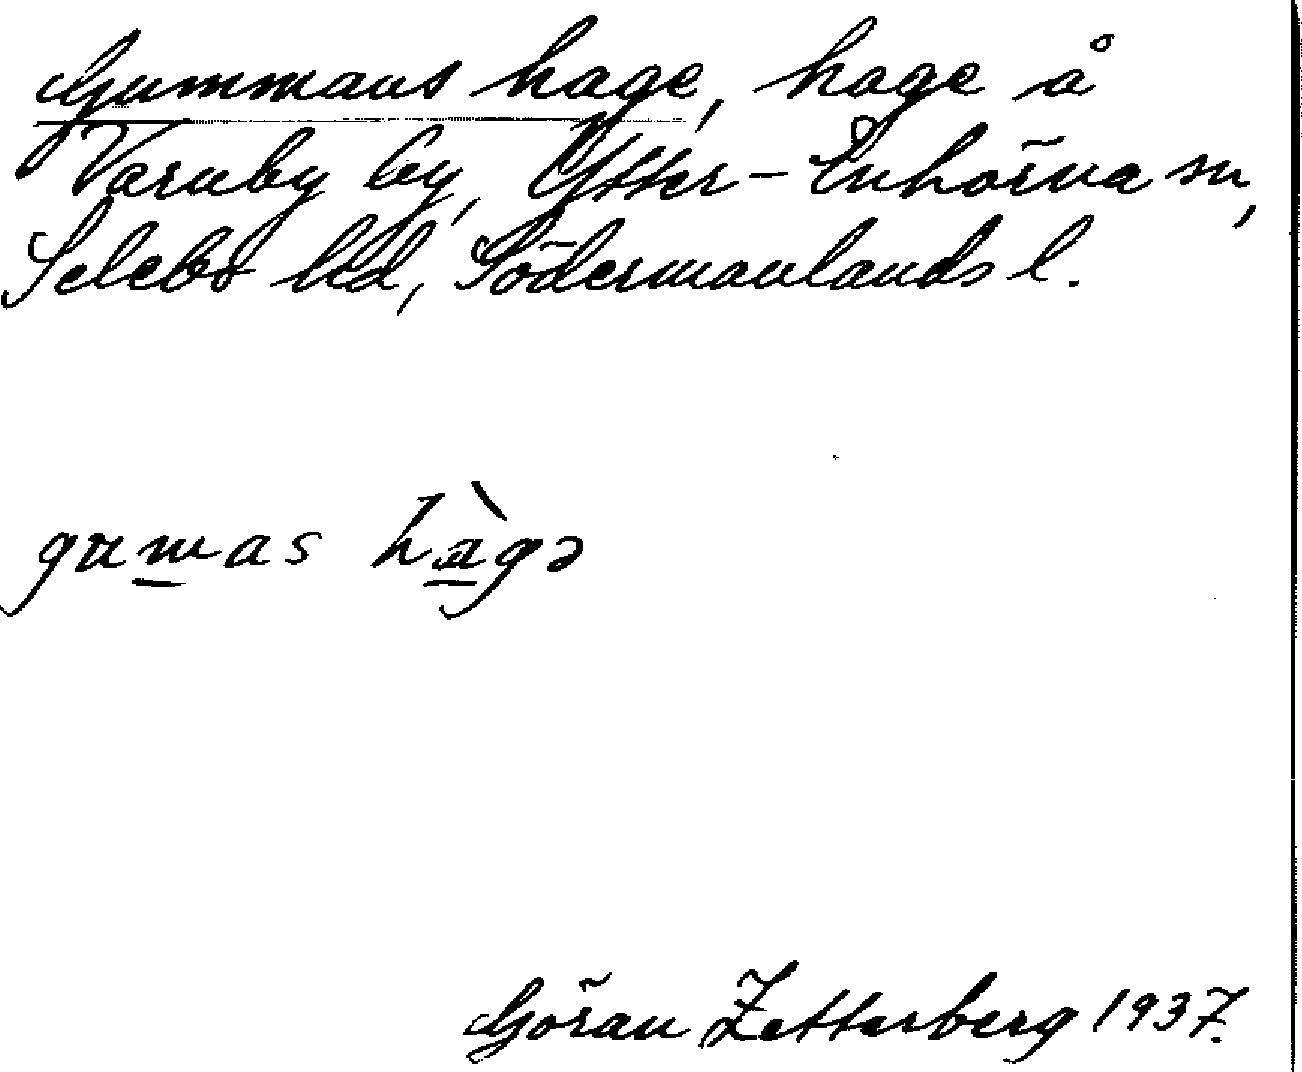 Gummans hage, hage å
Varnby by, Ytter-Enhörna sn,
Selebo hd, Södermanlands l.
gumas hàgə
Göran Zetterberg 1937.